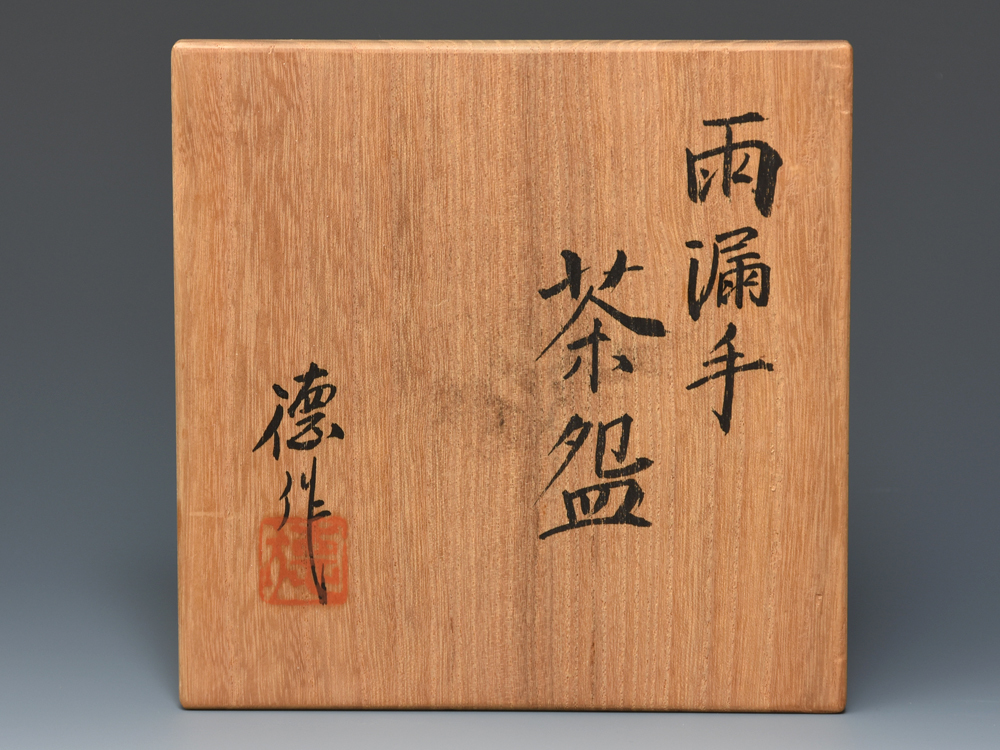 雨漏手
茶盌
徳作